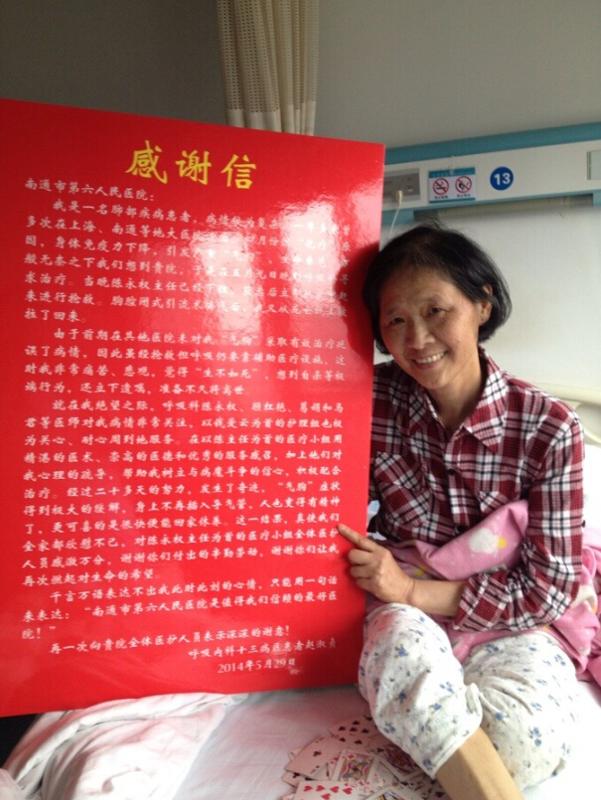 感谢信
南通市第六人民医院：
我是一名肺部疾病患者，病情较为复杂，一年多
多次在上海、南通等地大医院 月份 疗 原
因，身体免疫力下降，引发 气胸
般无奈之下我们想到贵院，于是在五月九日 呼吸
求治疗。当晚陈永权主任已经下班，
来进行抢救。胸腔闭式引流术 后，又从死
拉了回来。
由于前期在其他医院未对我“气胸”采取有效治疗延
误了病情，因此虽经抢救但呼吸仍要靠辅助医疗设施，这
对我非常痛苦、悲观，觉得“生不如死”，想到自杀等极
端行为，还立下遗嘱，准备不久将离世
就在我绝望之际，呼吸科陈永权、顾红艳、葛娟和马
君等医师对我病情非常关注，以钱爱云为首的护理组也极
为关心、耐心周到地服务。在以陈主任为首的医疗小组用
精湛的医术、崇高的医德和优秀的服务感召，加上他们对
我心理的疏导，帮助我树立与病魔斗争的信心，积极配合
治疗。经过二十多天的努力，发生了奇迹，“气胸”症状
得到极大的缓解，身上不再插入导气管，人也变得有精神
了，更可喜的是很快便能回家休养。这一结果，真使我们
全家都欣慰不已，对陈永权主任为首的医疗小组全体医护
人员感激不分，谢谢你们付出的辛勤劳动，谢谢你们让我
再次燃起对生命的希望。
千言万语表达不出我此时此刻的心情，只能用一句话
来表达：“南通市第六人民医院是值得我们信赖的最好医
院！”
再一次向贵院全体医护人员表示深深的谢意！
呼吸内科十三病区患者赵淑贞
2014年5月29日
13